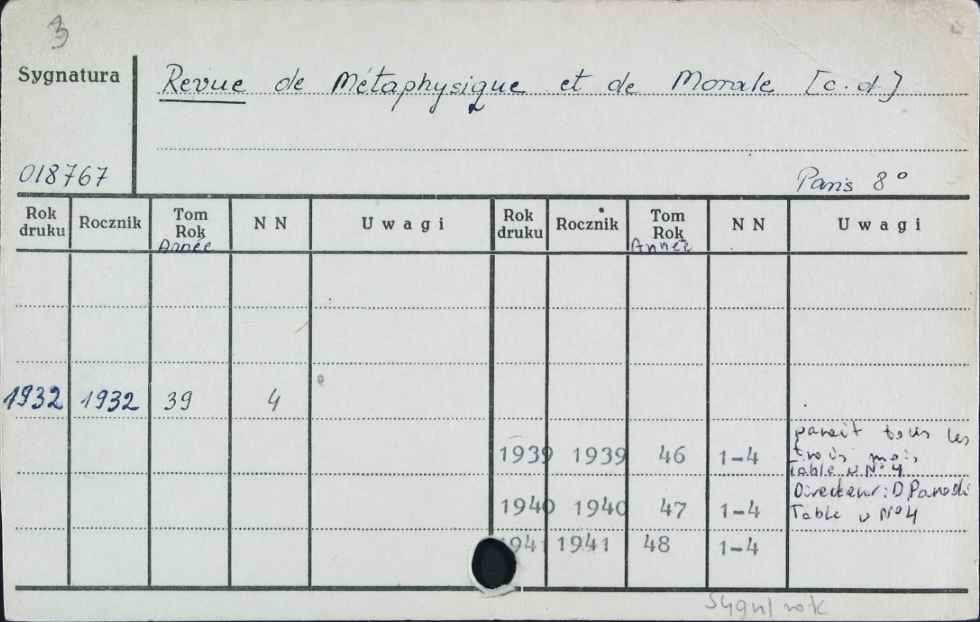 3
Sygnatura
Revue de Métaphysique et de Morale [c.d]
018767
Paris 8°
Rok druku Rocznik Tom Rok Année N N Uwagi Rok druku Rocznik Tom Rok Année N N Uwagi
1932 1932 39 4
1939 1939 46 1-4 parait tous les trois mois Table v N°4
1940 1940 47 1-4 Directeur: D Table v N°4
1941 1941 48 1-4
Sygn/rok